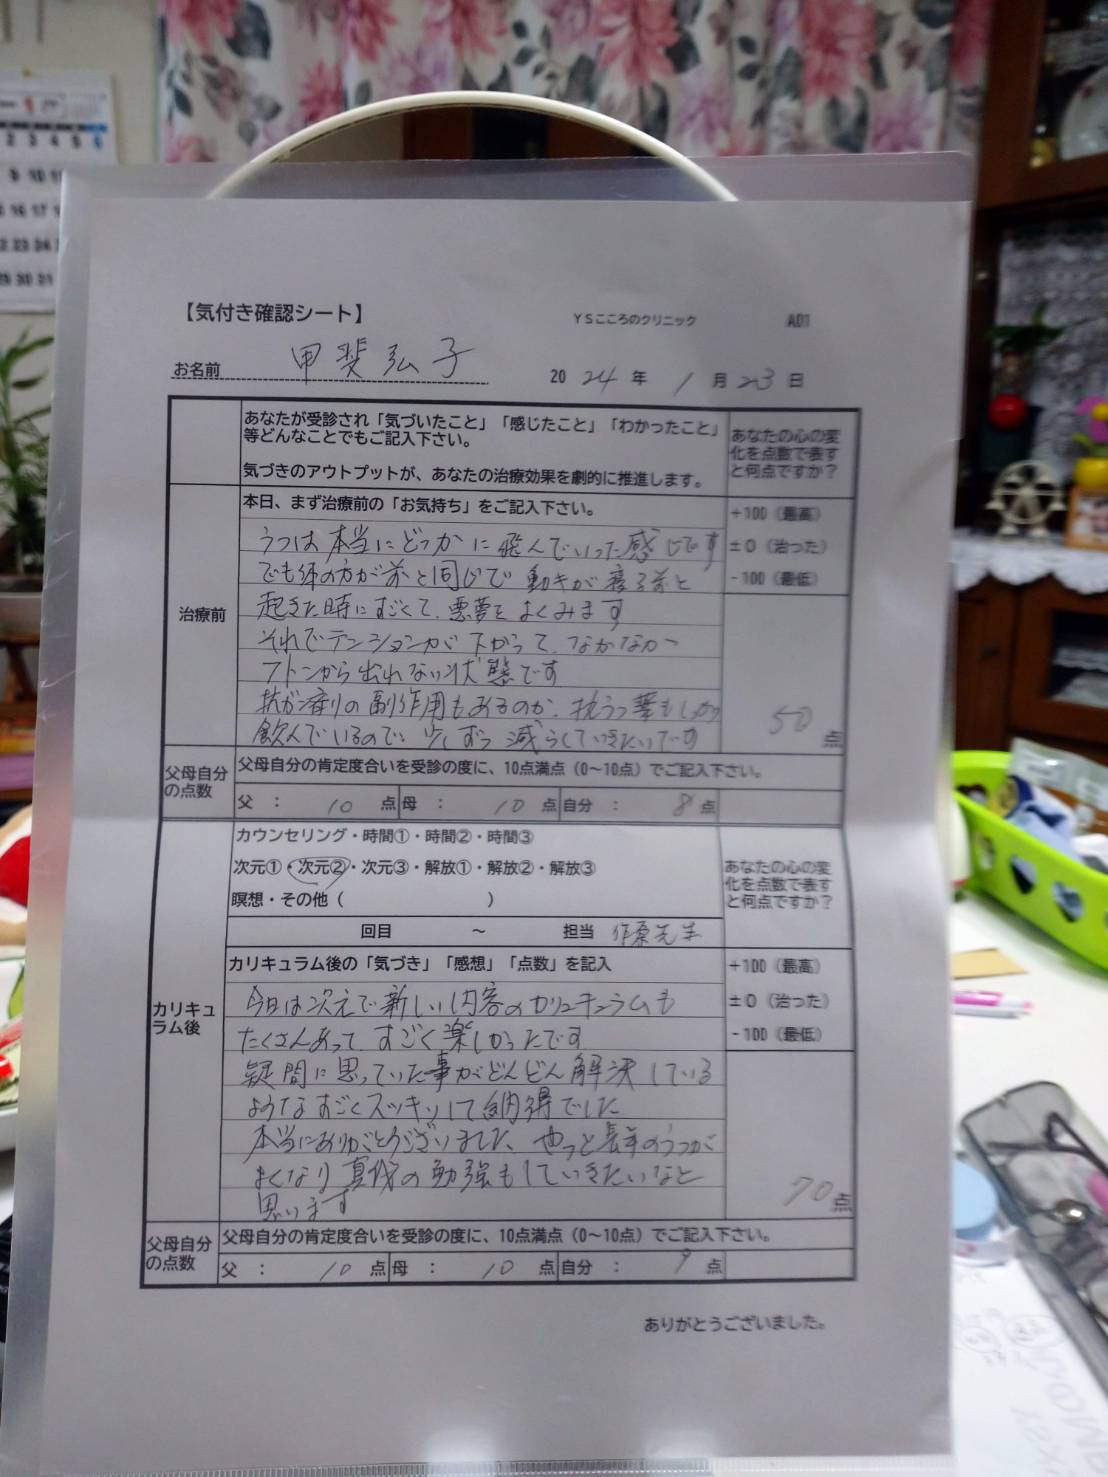 【気付き確認シート】
YSこころのクリニック
A01
お名前 甲斐弘子
2024年 1月23日
あなたが受診され「気づいたこと」「感じたこと」「わかったこと」
等どんなことでもご記入下さい。
気づきのアウトプットが、あなたの治療効果を劇的に推進します。
あなたの心の変
化を点数で表す
と何点ですか？
治療前
本日、まず治療前の「お気持ち」をご記入下さい。
うつは本当にどっかに飛んでいった感じです
でも体の方が前と同じで動きが寝る前と
起きた時にすごくて、悪夢をよくみます
それでテンションが下がって、なかなか
フトンから出れない状態です
抗ガン剤の副作用もあるのか、抗うつ薬もしっかり
飲んでいるので少しずつ減らしていきたいです
+100（最高）
±0（治った）
-100（最低）
50点
父母自分
の点数
父母自分の肯定度合いを受診の度に、10点満点（0～10点）でご記入下さい。
父： 10点 母： 10点 自分： 8点
カリキュ
ラム後
カウンセリング・時間①・時間②・時間③
次元①・次元②・次元③・解放①・解放②・解放③
瞑想・その他（ ）
回目 ～ 担当 先生
あなたの心の変
化を点数で表す
と何点ですか？
カリキュラム後の「気づき」「感想」「点数」を記入
今日は次元で新しい内容のカリュキュラムも
たくさんあって、すごく楽しかったです
疑問に思っていた事がどんどん解決している
ようなすごくスッキリして納得でした
本当にありがとうございました、やっと長年のうつが
よくなり真我の勉強もしていきたいなと
思います
+100（最高）
±0（治った）
-100（最低）
70点
父母自分
の点数
父母自分の肯定度合いを受診の度に、10点満点（0～10点）でご記入下さい。
父： 10点 母： 10点 自分： 9点
ありがとうございました。